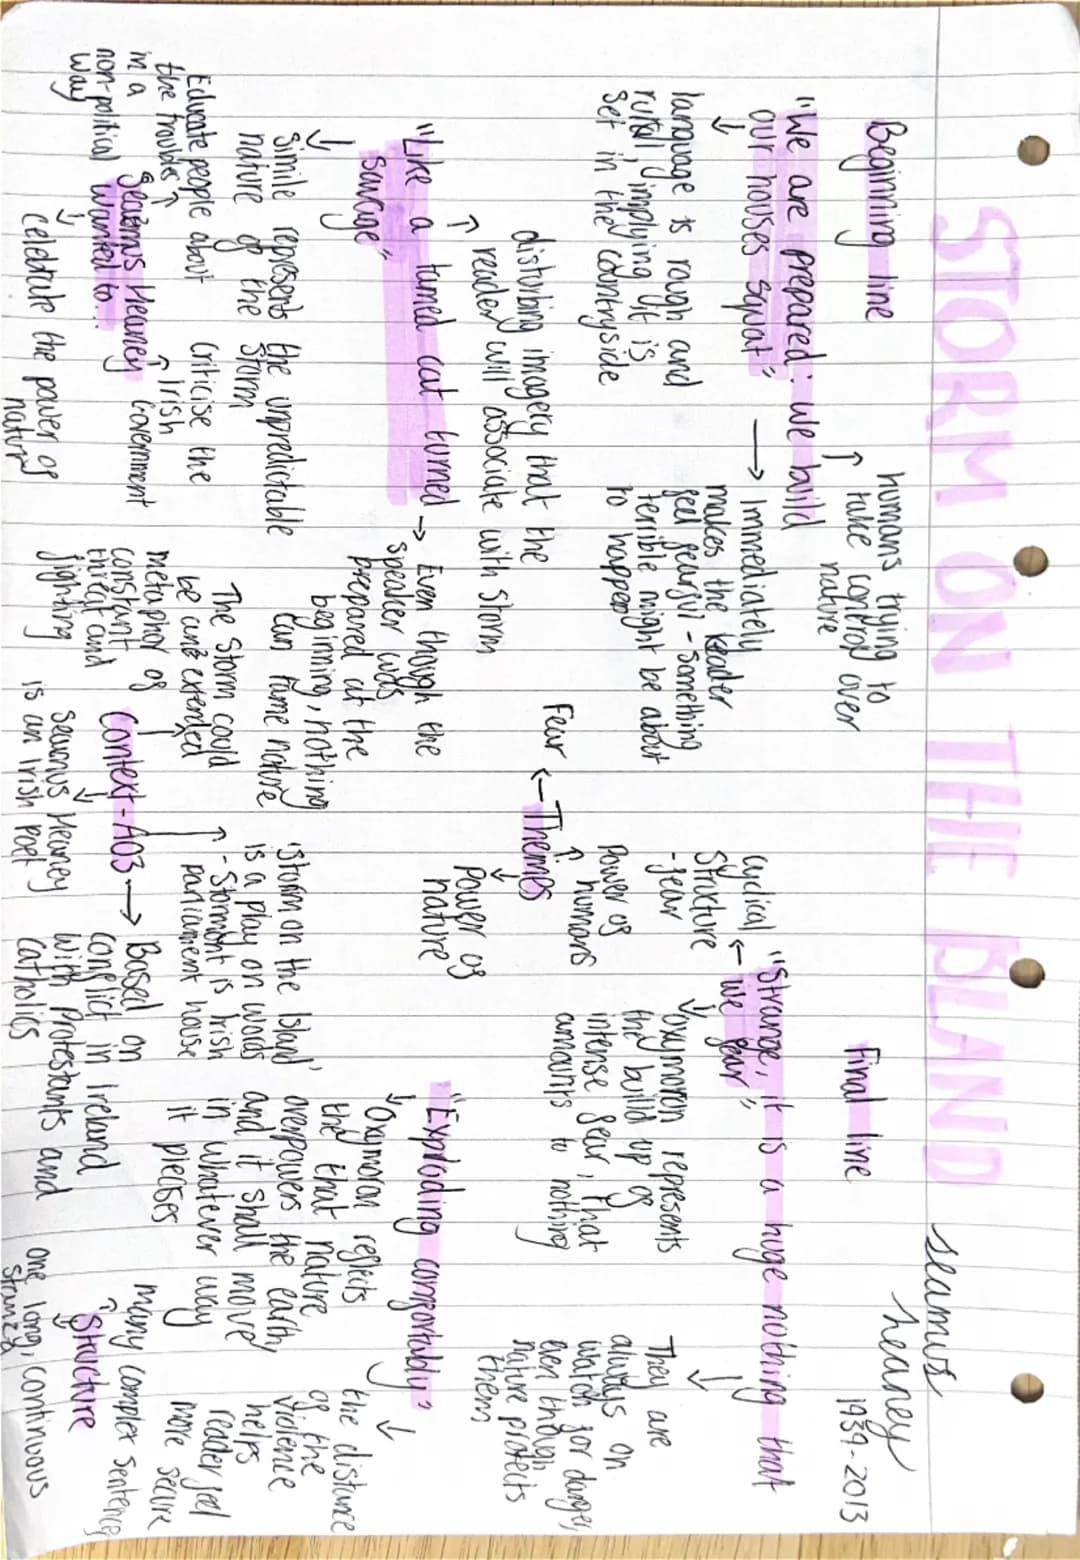 STORM ON THE ISLAND
seamus
heaney
1939-2013
Beginning line
"We are prepared: we build
our houses squat"
language is rough and
rural, implying it is
set in the countryside
humans trying to
take control over
nature
Immediately
makes the reader
feel fearful - something
terrible might be about
to happen
Final line
"Strange, it is a huge nothing that
we fear"
cyclical
structure
-fear
oxymoron represents
the build up of
intense fear, that
amounts to nothing
They are
always on
watch for danger,
even though
nature protects
them
Themes
Fear
Power of
humans
Power of
nature
disturbing imagery that the
reader will associate with storm
"Like a tamed cat turned
Savage"
Simile represents the unpredictable
nature of the storm
Even though the
speaker was
prepared at the
beginning, nothing
can tame nature
"Exploding comfortably"
Oxymoron reflects
the that nature
overpowers the earth
and it shall move
in whatever way
it pleases
the distance
of the
violence
helps
reader feel
more secure
Seamus Heaney
wanted to...
Educate people about
the troubles
in a
non-political
way
Criticise the
Irish
Government
Celebrate the power of
nature
Context-A03
The storm could
be an extended
metaphor of
constant
threat and
fighting
'Storm on the Island'
is a play on words
- Stormont is Irish
parliament house
Based on
conflict in Ireland
with Protestants and
Catholics
Seamus Heaney
is an Irish poet
Structure
many complex sentences
one long, continuous
stanza